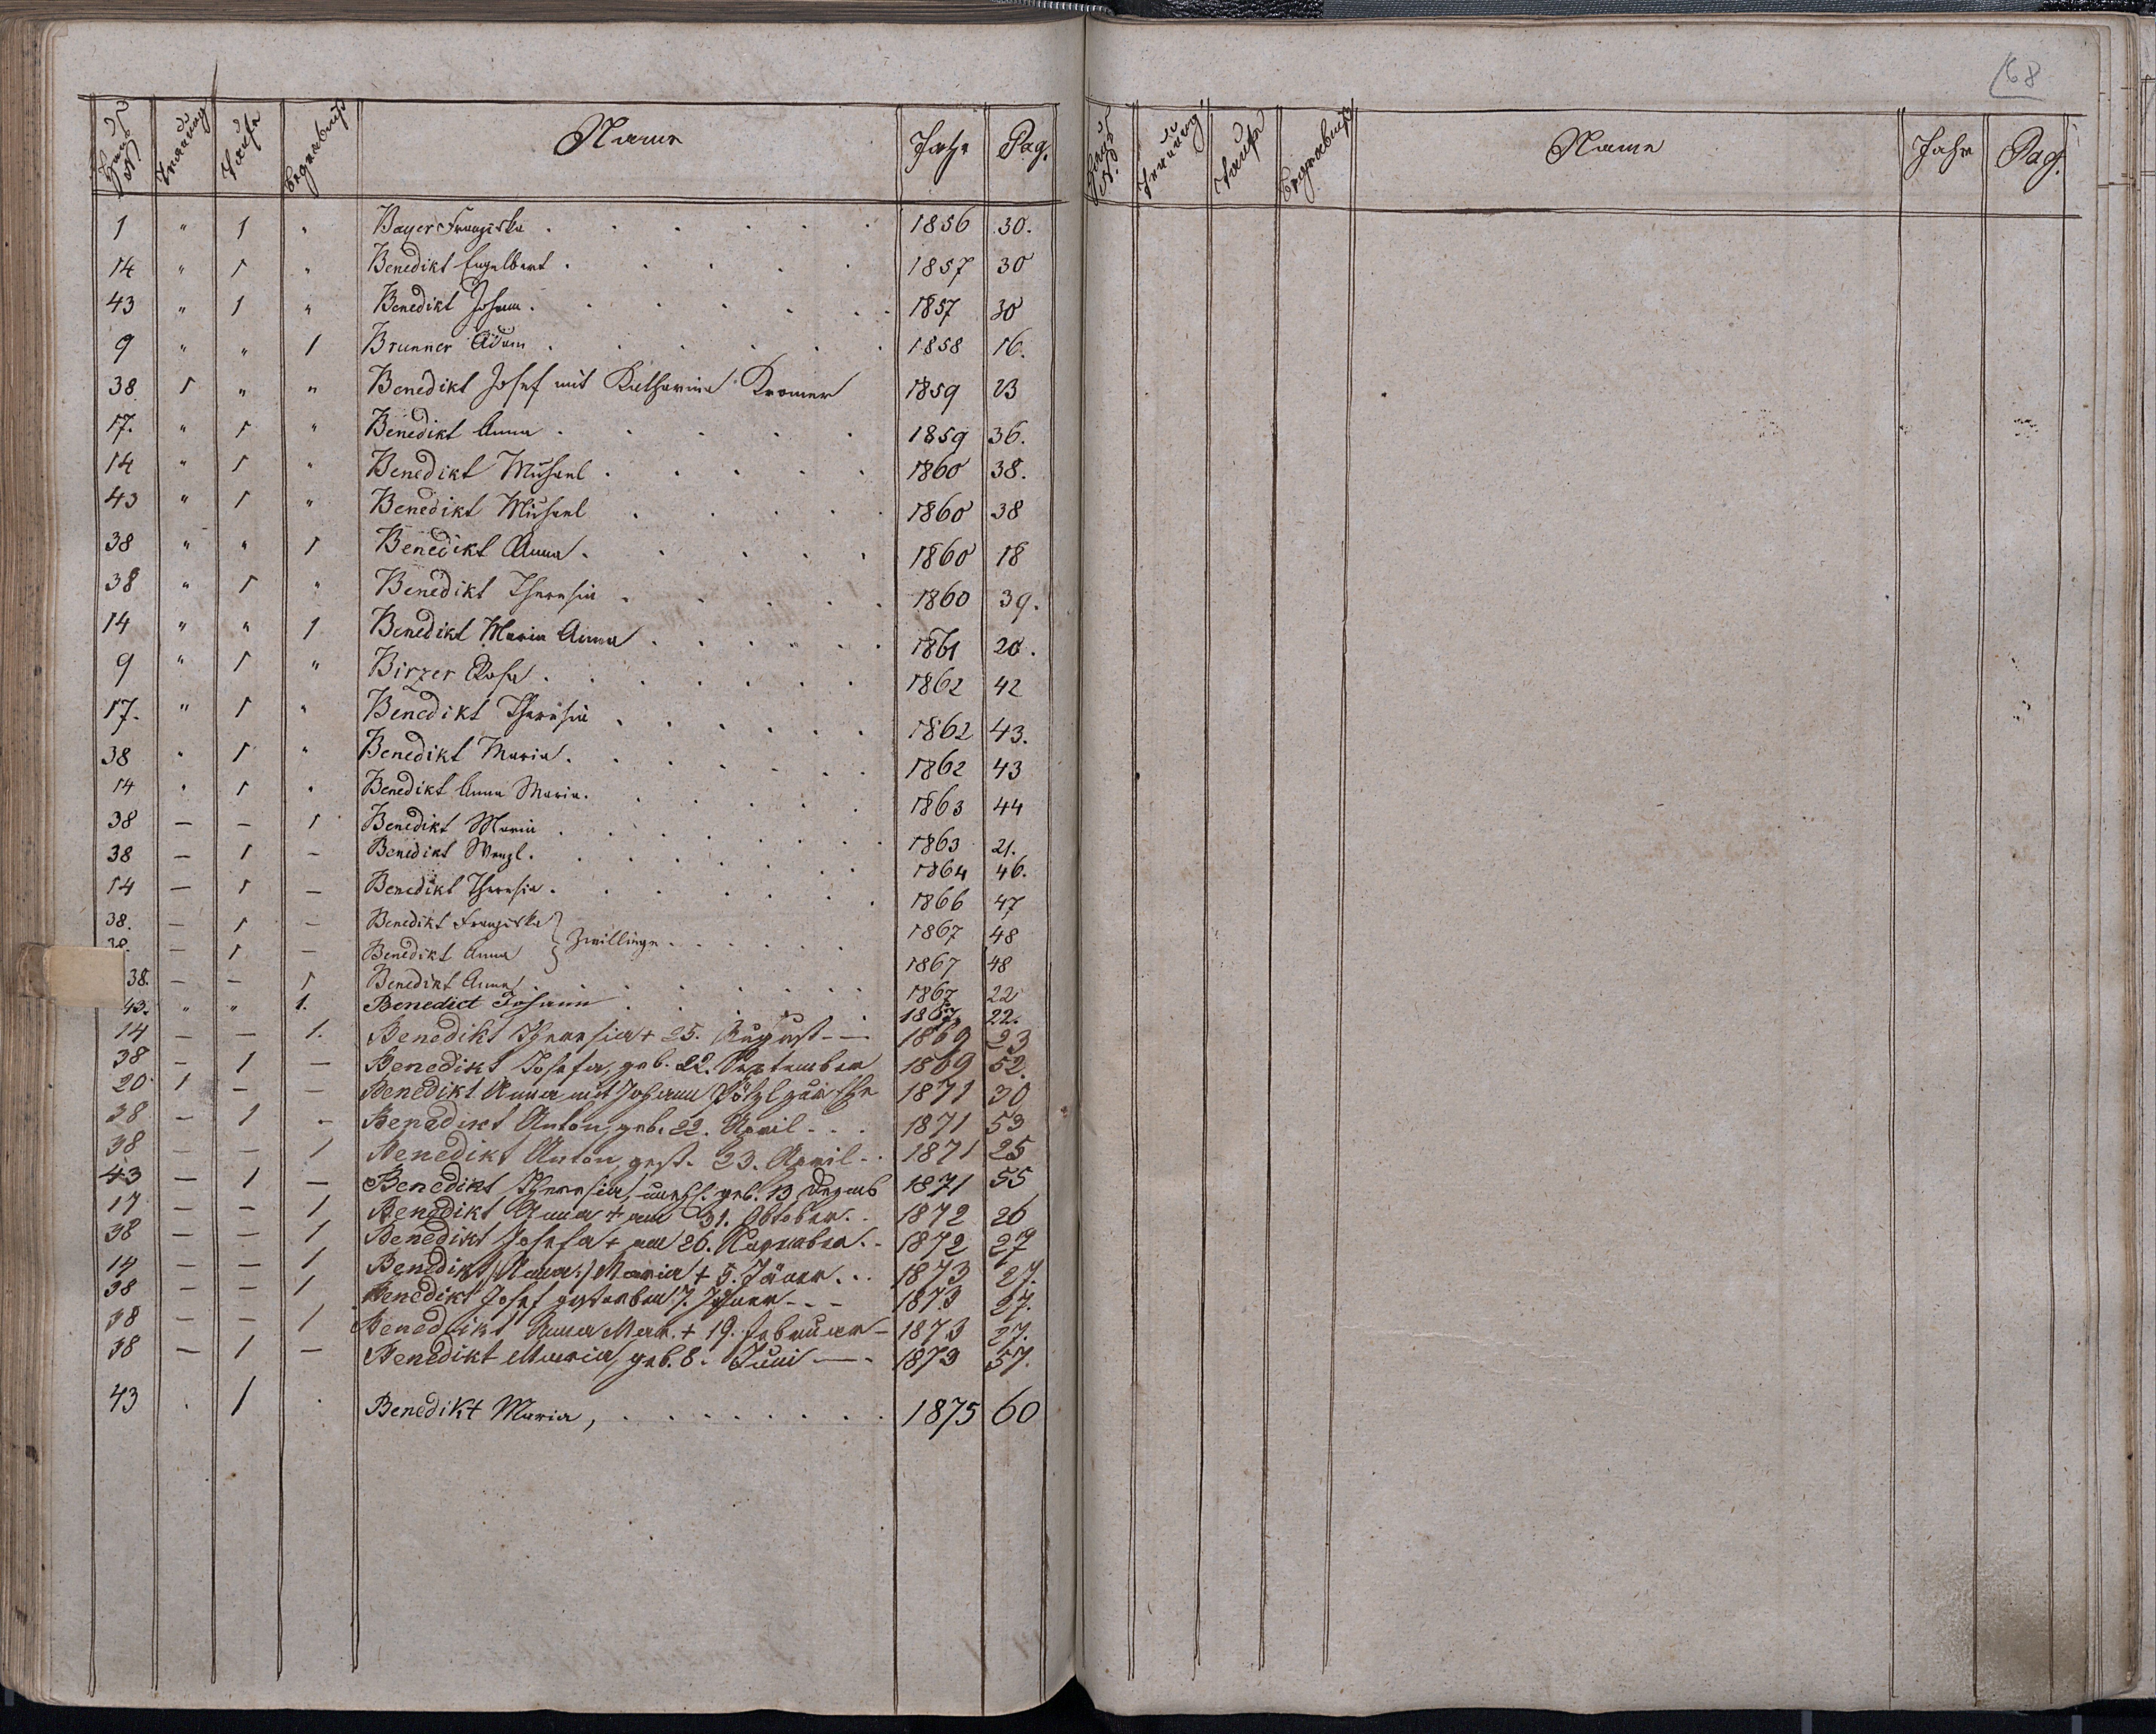 68
Haus N Trauung Taufe Begräbniß Name Jahr Pag.
1 " 1 " Bayer Franziska . . . . . . 1856 30.
14 " 1 " Benedikt Engelbert . . . . . 1857 30
43 " 1 " Benedikt Johann . . . . . . 1857 30
9 " " 1 Brunner Adam . . . . . . 1858 16.
38 1 " " Benedikt Josef mit Katharina Kromer 1859 23
17. " 1 " Benedikt Anna . . . . . 1859 36.
14 " 1 " Benedikt Michael . . . . . 1860 38.
43 " 1 " Benedikt Michael . . . . . 1860 38
38 " " 1 Benedikt Anna . . . . . 1860 18
38 " 1 " Benedikt Theresia . . . . . 1860 39.
14 " " 1 Benedikt Maria Anna . . . . . . 1861 20.
9 " 1 " Birzer Rosa . . . . . . . 1862 42
17. " 1 " Benedikt Theresia . . . . . . 1862 43.
38 " 1 " Benedikt Maria . . . . . . . 1862 43
14 " 1 " Benedikt Anna Maria . . . . . . 1863 44
38 — — 1 Benedikt Maria . . . . . . . 1863 21.
38 — 1 — Benedikt Wenzl . . . . . . . 1864 46.
14 — 1 — Benedikt Theresia . . . . . . . 1866 47
38. — 1 — Benedikt Franziska } Zwillinge . . . . . . 1867 48
38. — 1 — Benedikt Anna 1867 48
38. — — 1 Benedikt Anna . . . . . . . 1867 22
43. " " 1. Benedict Johann . . . . . . 1867 22.
14 — — 1. Benedikt Theresia + 25. August — 1869 23
38 — 1 — Benedikt Josefa, geb. 22. September 1869 52.
20 1 — — Benedikt Anna mit Johann Pötzl zur Ehe 1871 30
38 — 1 — Benedikt Anton, geb. 22. April . . . 1871 53
38 — — 1 Benedikt Anton gest. 23. April . . 1871 25
43 — 1 — Benedikt Theresia, unehl. geb. 13 Dezemb 1871 55
17 — — 1 Benedikt Anna + am 31. Oktober . . 1872 26
38 — — 1 Benedikt Josefa + am 26. November . . 1872 27
14 — — 1 Benedikt /Anna/ Maria + 5. Jäner . . . 1873 27.
38 — — 1 Benedikt Josef gestorben 7. Jäner - - - 1873 27.
38 — — 1 Benedikt Anna Mar. + 19. Februar — 1873 27.
38 — 1 — Benedikt Maria, geb. 8. Juni — - 1873 57.
43 . 1 . Benedikt Maria, . . . . . . . . . 1875 60
Haus N. Trauung Taufe Begräbniß Name Jahr Pag.